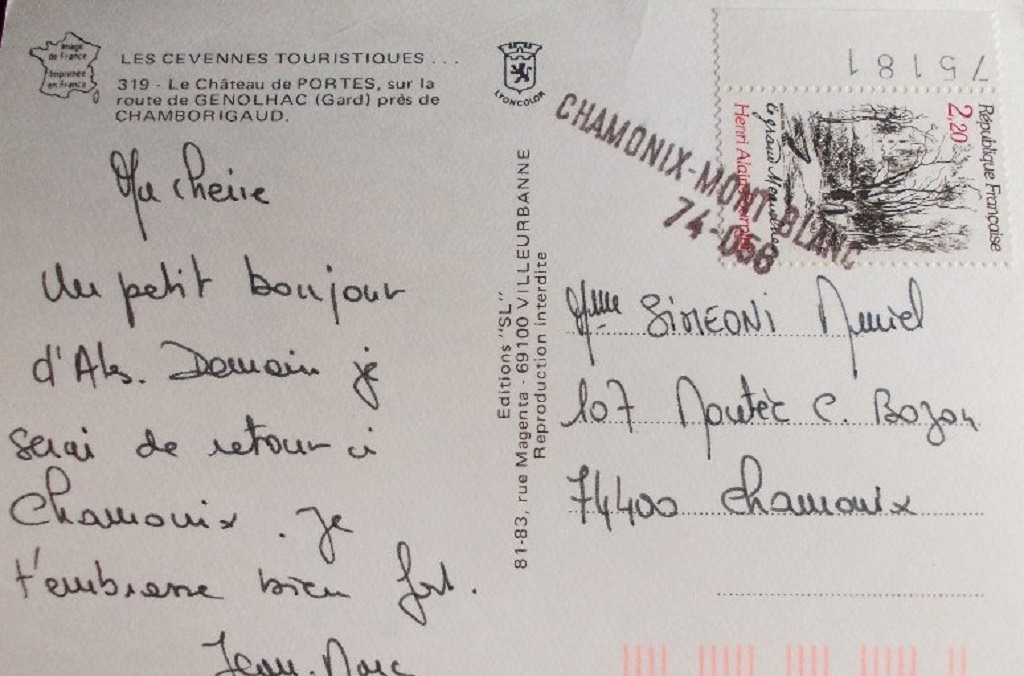 Image
de France
Imprimée
en France
LES CEVENNES TOURISTIQUES . . .
319 - Le Château de PORTES, sur la
route de GENOLHAC (Gard) près de
CHAMBORIGAUD.
LYONCOLOR
Ma cherie
Un petit bonjour
d'Alès. Demain je
serai de retour à
Chamonix. Je
t'embrasse bien fort.
Jean-Marc
Editions "SL"
81-83, rue Magenta - 69100 VILLEURBANNE
Reproduction interdite
75181
République Française
2,20
le grand Meaulnes
Henri Alain-Fournier
CHAMONIX-MONT-BLANC
74-056
Mme SIMEONI Muriel
107 Montée C. Bozon
74400 Chamonix